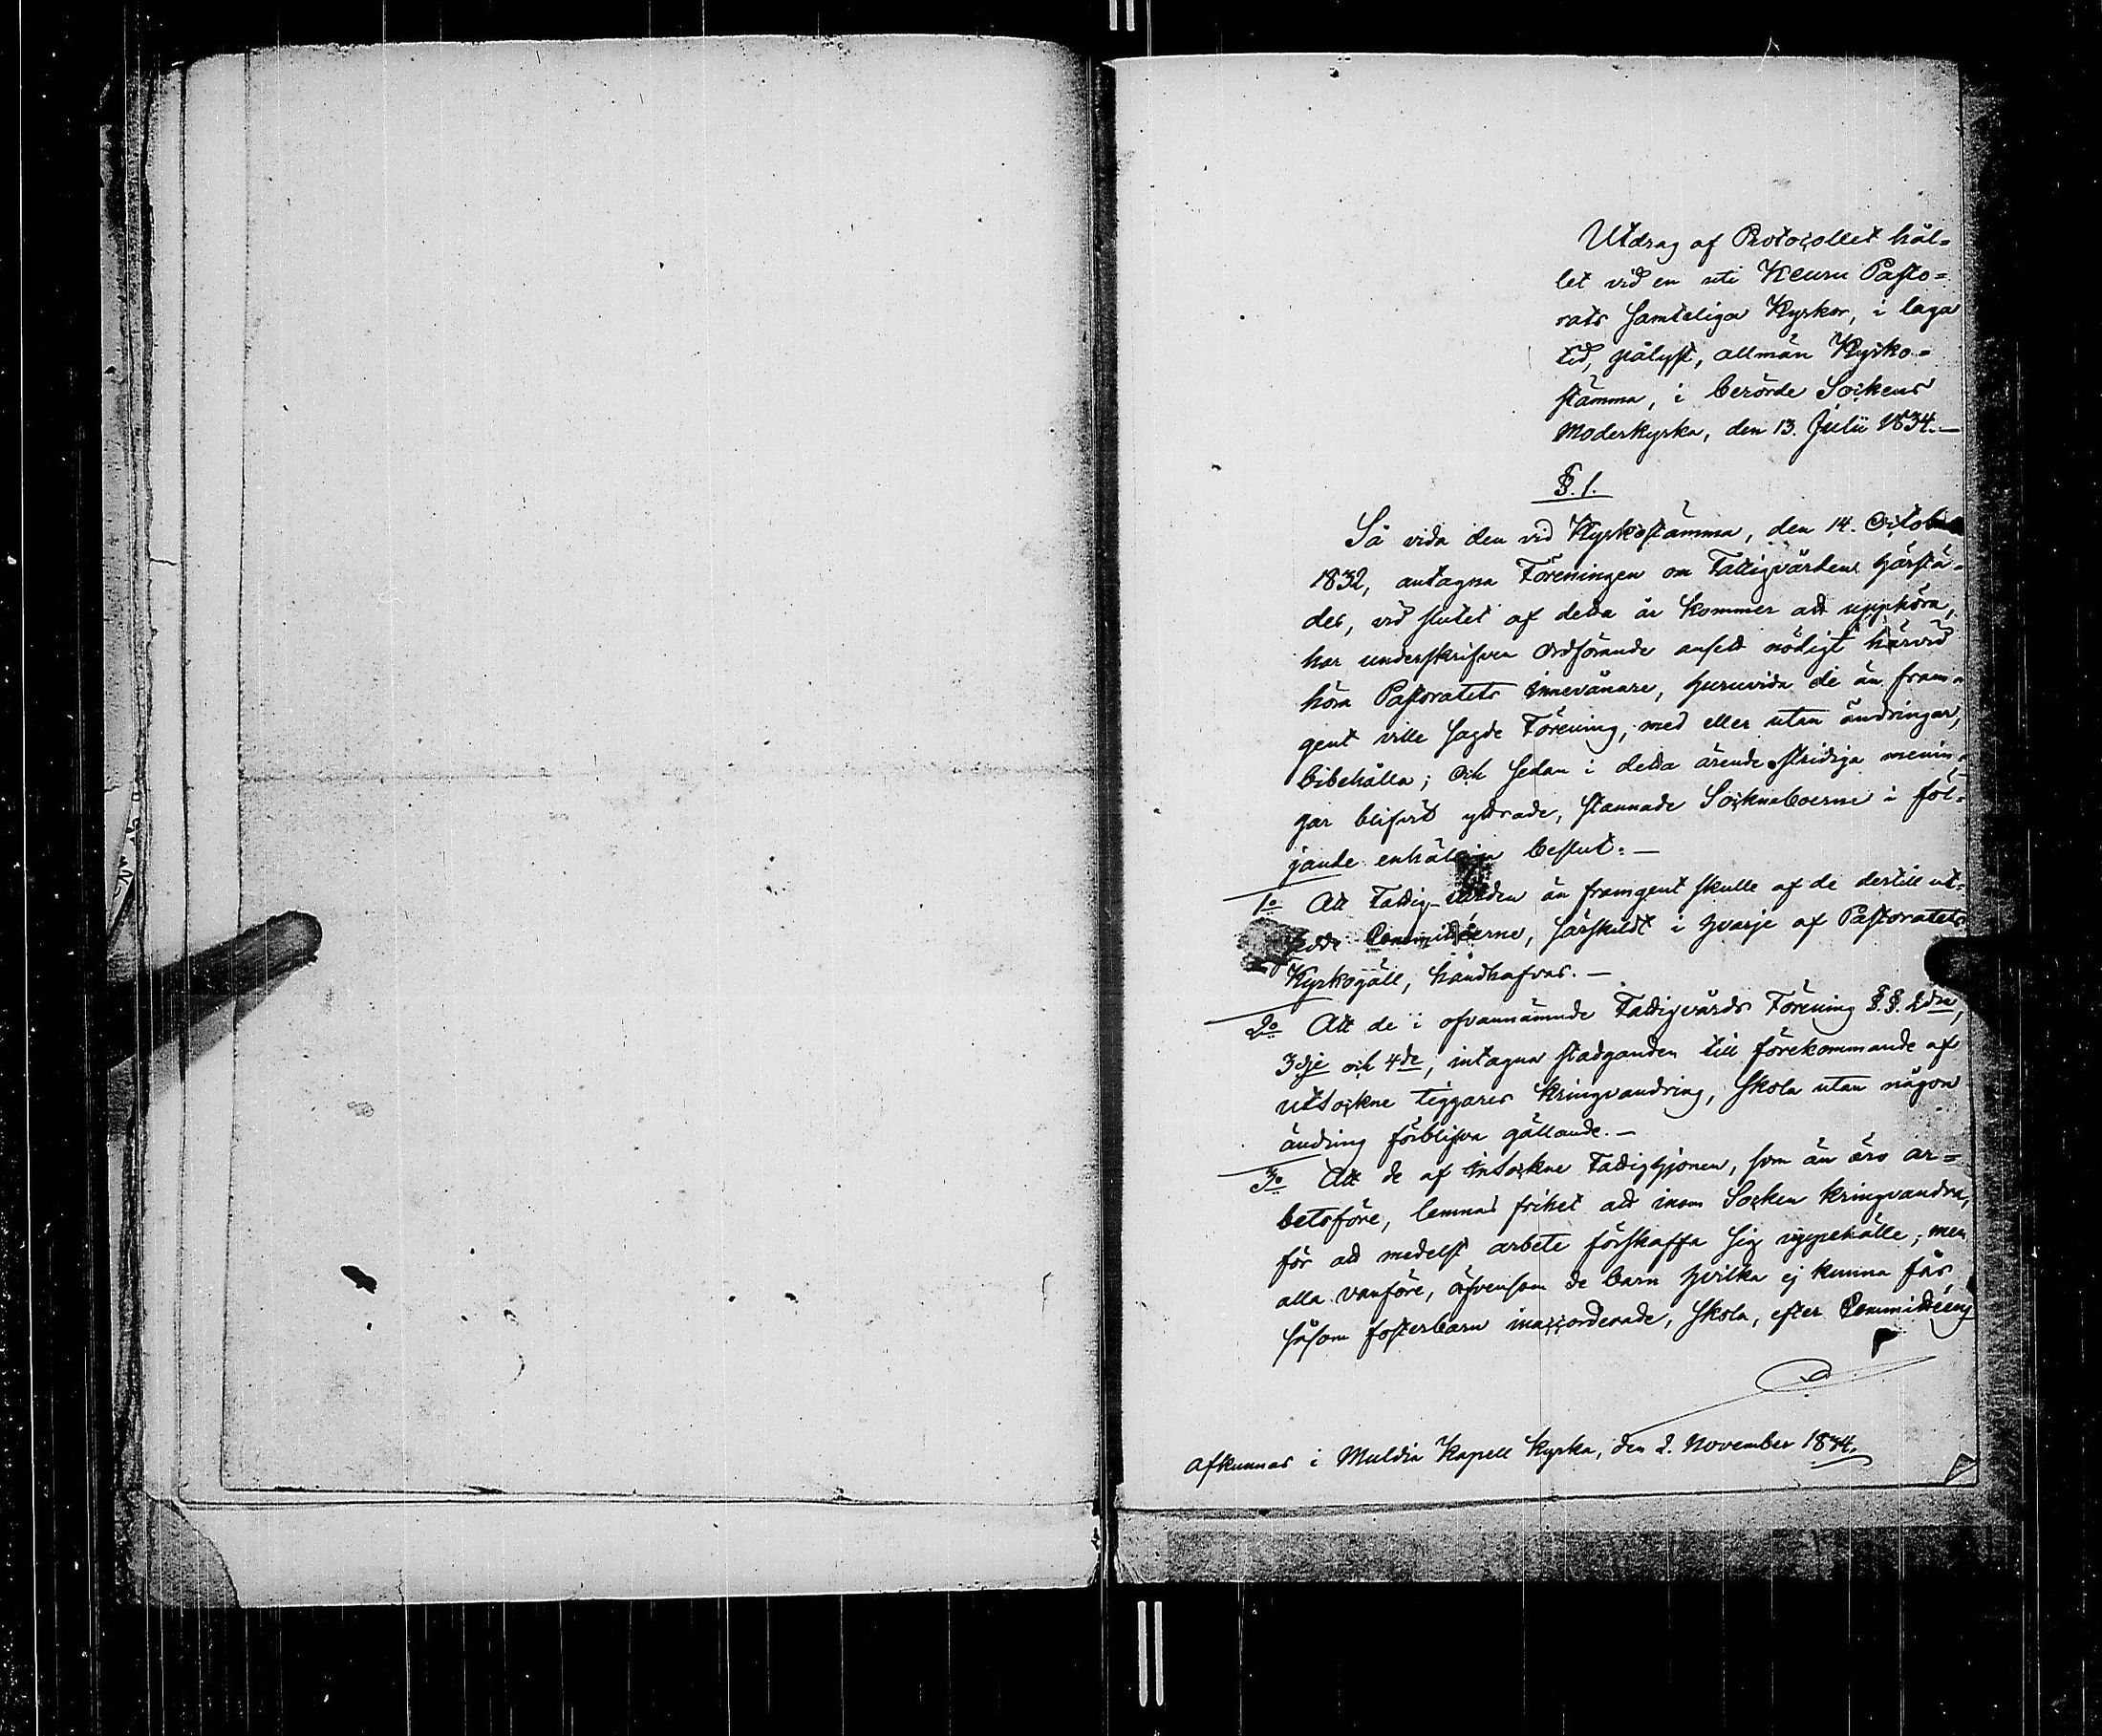 Utdrag af Protocollet hål=
let vid en uti Keuru Pasto=
rats samteliga Kyrkor, i laga
tid, pålyst, allmän Kyrko=
stämma, i berörde Sockens
Moderkyrka, den 13. Julii 1834.—
§. 1.
Så vida den vid Kyrkostämma, den 14. October
1832, antagna Föreningen om Fattigvården härstä-
des, vid slutet af detta år kommer att upphöra,
har underskrifven Ordförande ansett nödigt härvid
höra Pastoratets Innevånare, huruvida de än fram-
gent ville sagde Förening, med eller utan ändringar,
bibehålla; Och sedan i detta ärende stridiga menin-
gar blifvit yttrade, stannade Socknaboerne i föl-
jande enhälliga beslut:—
1o Att Fattig-vården än framgent skulle af de dertill ut-
sedde Committéerne, särskildt i hvarje af Pastoratets
Kyrkogäll, handhafvas.—
2o Att de i ofvannämnde Fattigvårds Förening §.§. 2dra,
3dje och 4de, intagna stadganden till förekommande af
utsockne tiggares kringvandring, skola utan någon
ändring förblifva gällande.—
3o Att de af insockne Fattighjonen, som än äro ar=
betsföre, lemnas frihet att inom Socken kringvandra,
för att medelst arbete förskaffa sig uppehälle; men
alla vanföre, äfvensom de barn hvilka ej kunna fås
såsom fosterbarn inaccorderade, skola, efter Committéens
Afkunnas i Muldia Kapell Kyrka, den 2. November 1834.